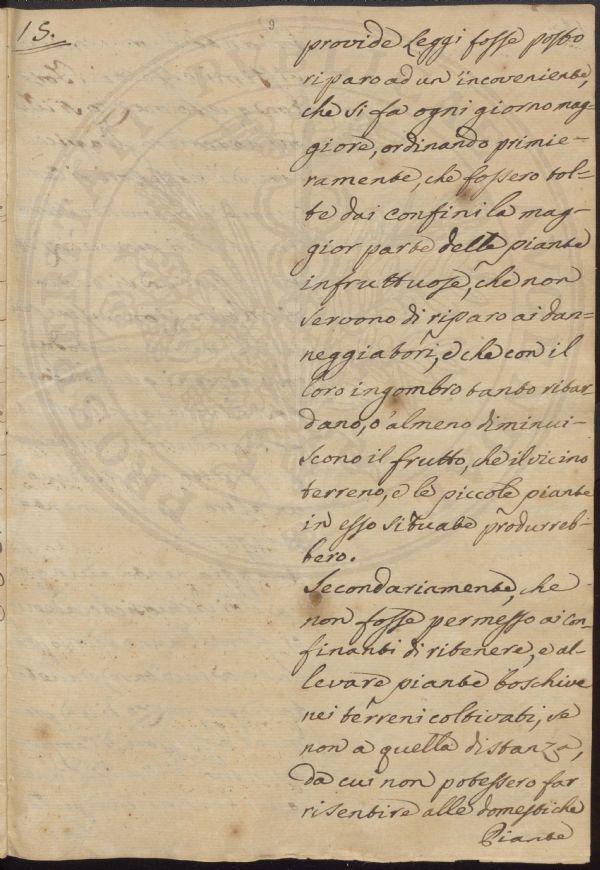 15.
provide Leggi fosse posto
riparo ad un' incoveniente,
che si fa ogni giorno mag-
giore, ordinando primie-
ramente, che fossero tol=
te dai confini la mag-
gior parte delle piante
infruttuose, che non
servono di riparo ai dan=
neggiatori, e che con il
loro ingombro tanto ritar
dano, o almeno diminui-
scono il frutto, che il vicino
terreno, e le piccole piante
in esso situate produrreb-
bero.
Secondariamente, che
non fosse permesso ai con
finanti di ritenere, e al-
levare piante boschive
nei terreni coltivati, se
non a quella distanza,
da cui non potessero far
risentire alle domestiche
Piante